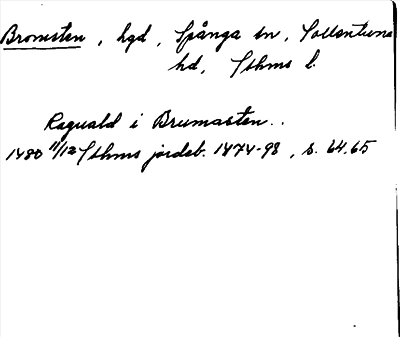 Bromsten, hgd, Spånga sn, Sollentuna
hd, Sthms l.
Ragvald i Brumasten..
1480 11/12 Sthms jordeb. 1474-98, s. 64.65